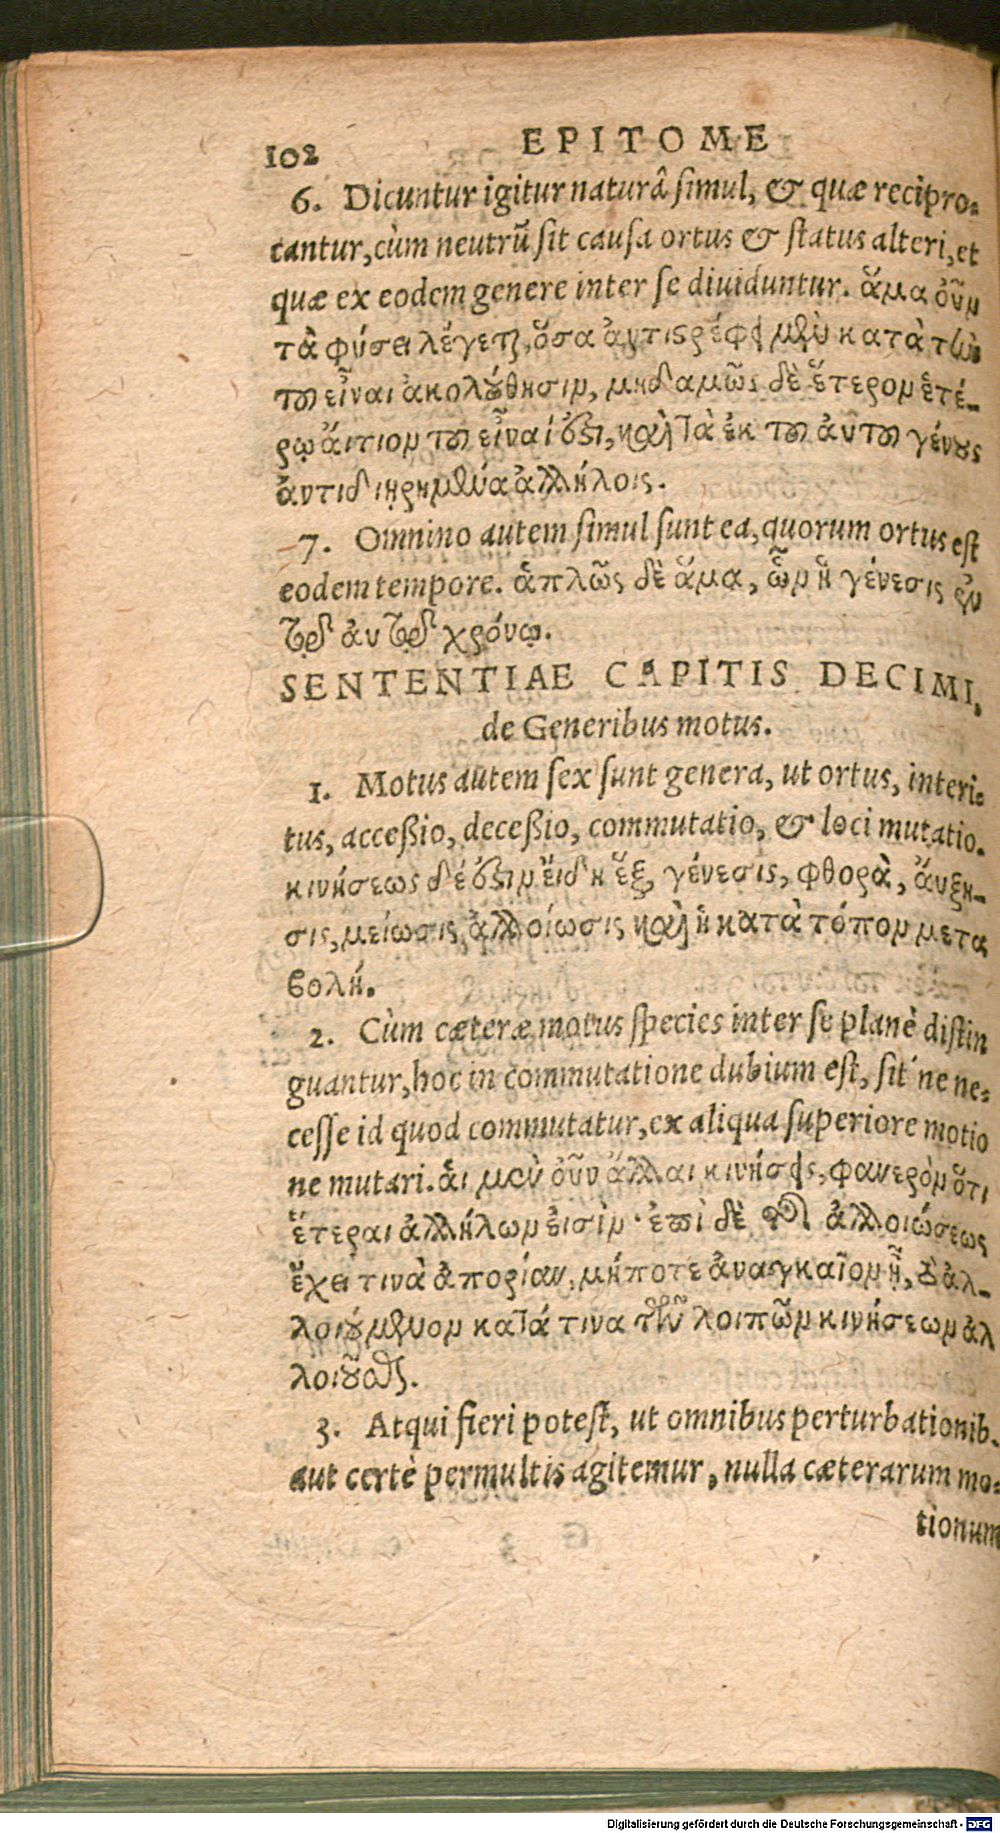 102 EPITOME
6. Dicuntur igitur naturâ simul, & quæ recipro-
cantur, cùm neutrũ sit causa ortus & status alteri, et
quæ ex eodem genere inter se diuiduntur. ἅμα οὖν
τὰ φύσει λέγεται, ὅσα ἀντιστρέφει μὲν κατὰ τὴν
τοῦ εἶναι ἀκολούθησιν, μηδαμῶς δὲ ἕτερον ἑτέ-
ρῳ ἄιτιον τοῦ εἶναί ἐστι, καὶ τὰ ἐκ τοῦ ἀυτοῦ γένους
ἀντιδιῃρημένα ἀλλήλοις.
7. Omnino autem simul sunt ea, quorum ortus est
eodem tempore. ἁπλῶς δὲ ἅμα, ὧν ἡ γένεσις ἐν
τῷ ἀυτῷ χρόνῳ.
SENTENTIAE CAPITIS DECIMI,
de Generibus motus.
1. Motus autem sex sunt genera, ut ortus, interi-
tus, accessio, decessio, commutatio, & loci mutatio.
κινήσεως δέ ἐστιν ἔιδη ἕξ, γένεσις, φθορὰ, ἄυξη-
σις, μείωσις, ἀλλοίωσις καὶ ἡ κατὰ τόπον μετα
βολή.
2. Cùm cæteræ motus species inter se planè distin
guantur, hoc in commutatione dubium est, sit ne ne-
cesse id quod commutatur, ex aliqua superiore motio
ne mutari. ἁι μὲν οὖν ἄλλαι κινήσεις, φανερὸν ὅτι
ἕτεραι ἀλλήλων ἐισίν· ἐπὶ δὲ τῆς ἀλλοιώσεως
ἔχει τινὰ ἀπορίαν, μήποτε ἀναγκαῖον ᾖ, τὸ ἀλ-
λοιούμενον κατά τινα τῶν λοιπῶν κινήσεων ἀλ
λοιοῦσθαι.
3. Atqui fieri potest, ut omnibus perturbationib.
aut certè permultis agitemur, nulla cæterarum mo-
tionum
Digitalisierung gefördert durch die Deutsche Forschungsgemeinschaft - DFG